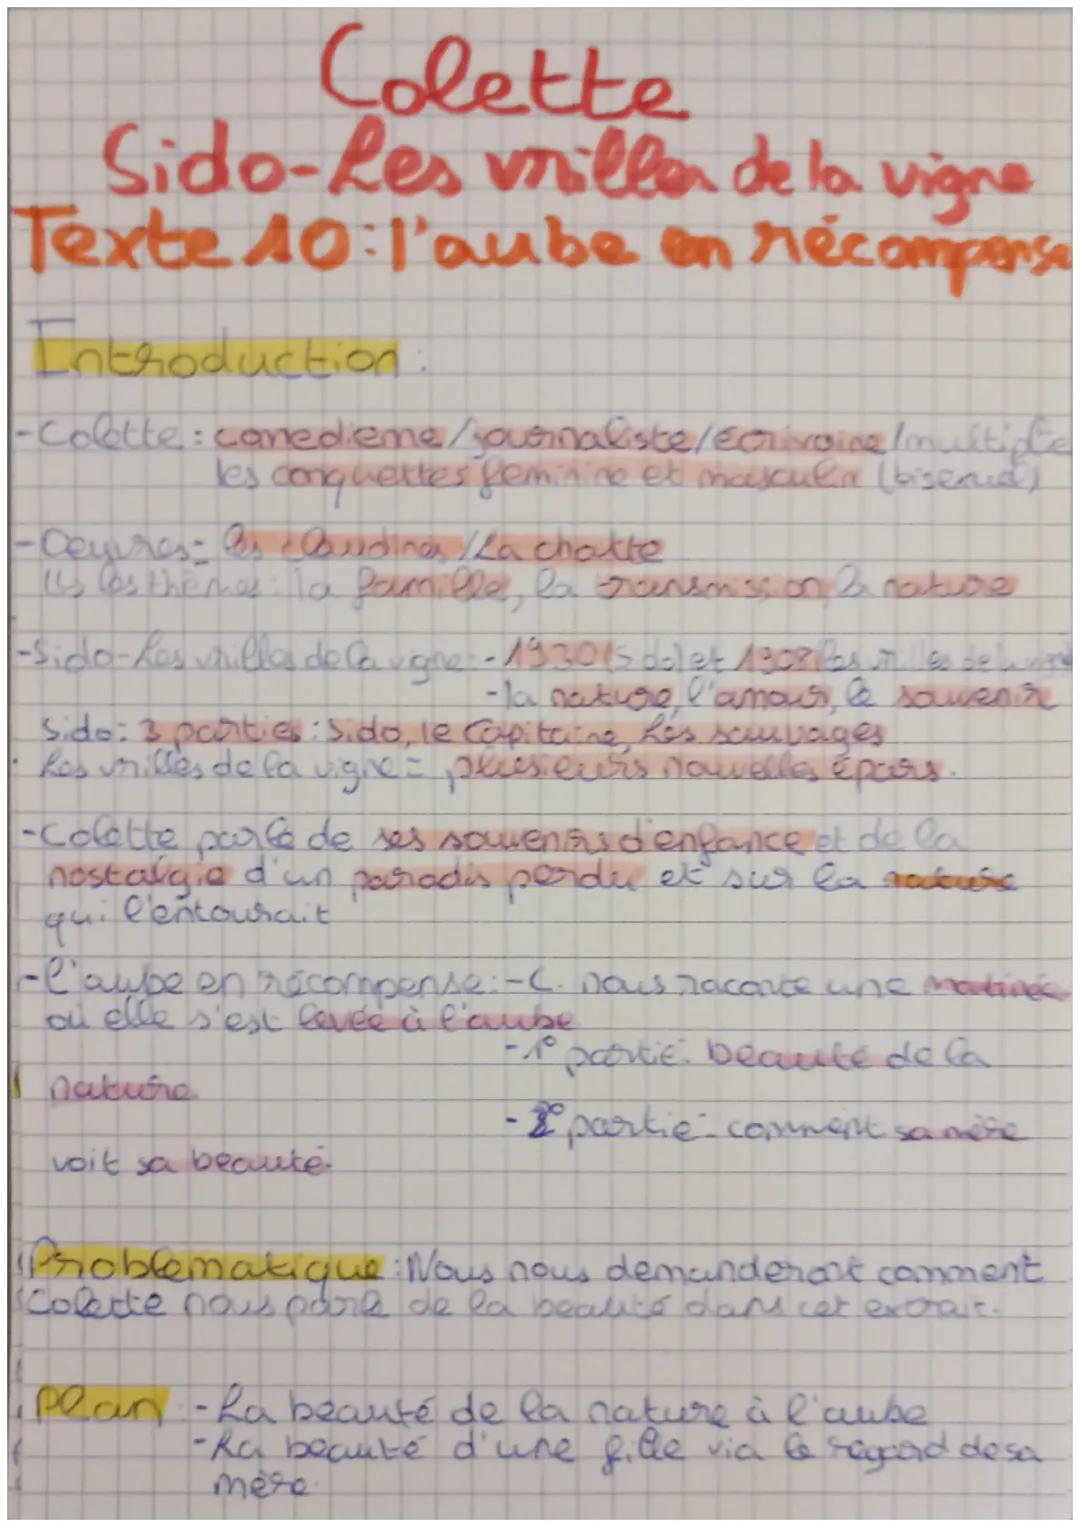 Colette
Sido-Les vrilles de la vigne
Texte 10: l'aube en récompense
Introduction:
-Colette: comedienne/journaliste/écrivaine/multiplie
les conquettes feminine et masculin (bisexuel)
-Oeuvres= les claudines/La chatte
↳ les thèmes: la famille, la transmission, la nature
-Sido-Les vrilles de la vigne:-1930(Sido) et 1908(Les vrilles de la vigne)
-la nature, l'amour, le souvenir
Sido: 3 parties: Sido, le Capitaine, Les sauvages
Les vrilles de la vigne= plusieurs nouvelles épars.
-Colette parle de ses souvenirs d'enfance et de la
nostalgie d'un paradis perdu et sur la nature
qui l'entourait
-l'aube en récompense:-C. nous raconte une matinée
où elle s'est levée à l'aube
-1° partie: beauté de la
nature
-2° partie: comment sa mère
voit sa beauté.
Problematique: Nous nous demanderont comment
Colette nous parle de la beauté dans cet extrait.
Plan: -La beauté de la nature à l'aube
-La beauté d'une fille via le regard de sa
mère.